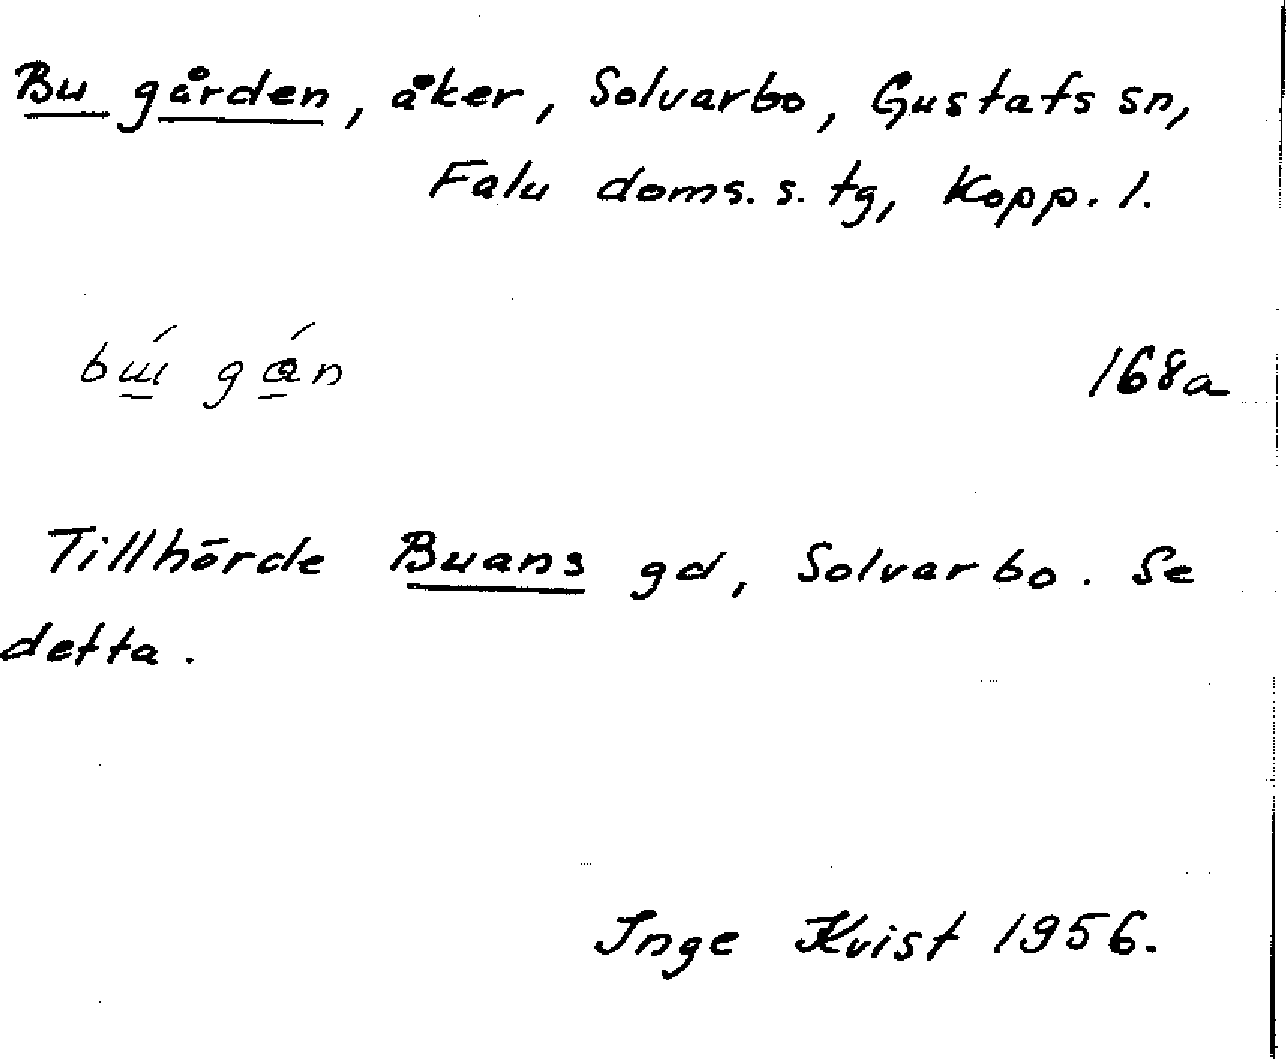 Bu gården, åker, Solvarbo, Gustafs sn,
Falu doms. s. tg, Kopp. l.
168a
Tillhörde Buans gd, Solvarbo. Se
detta.
Inge Kvist 1956.